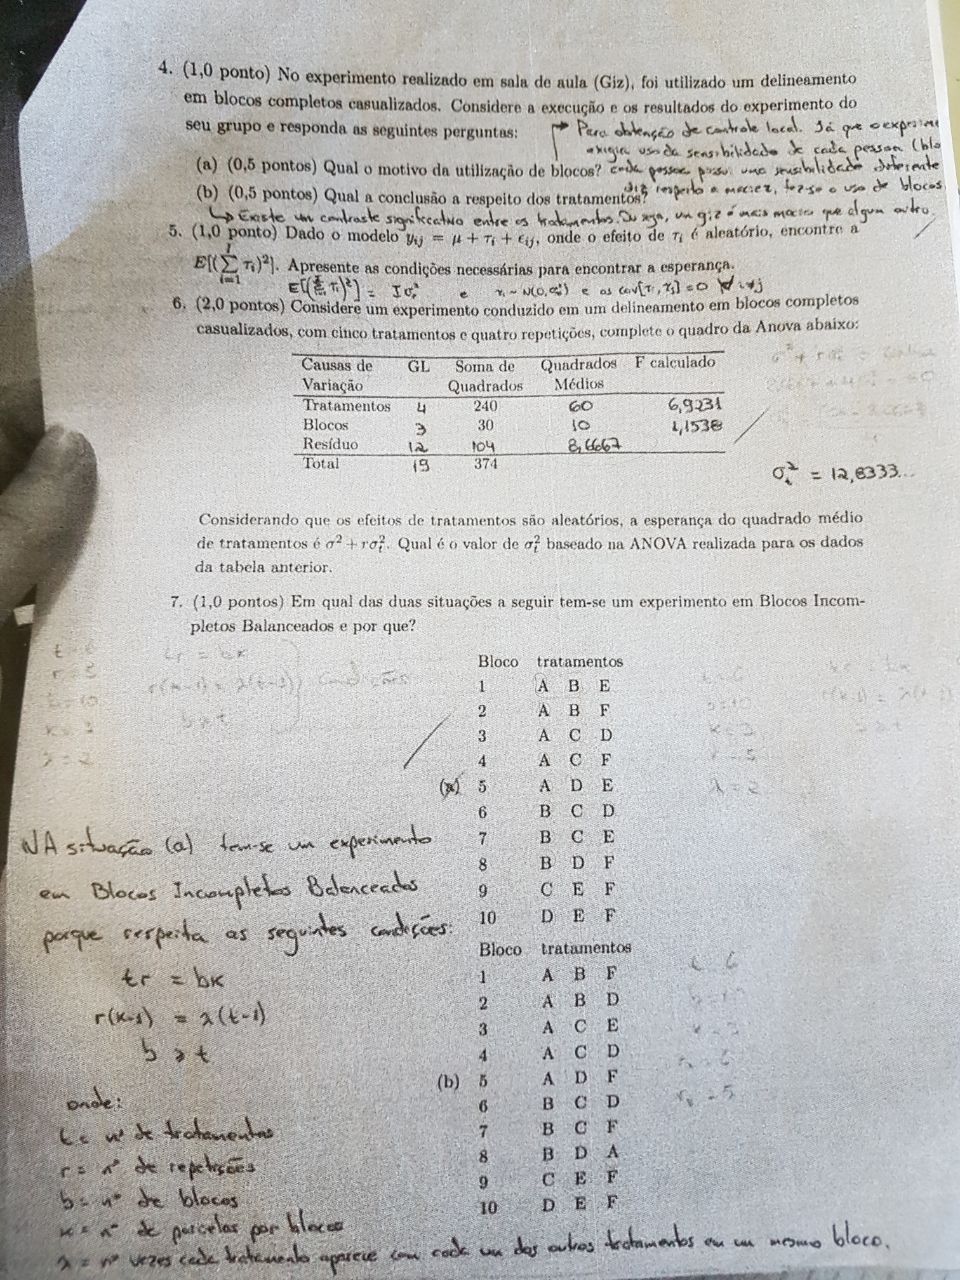 4. (1,0 ponto) No experimento realizado em sala de aula (Giz), foi utilizado um delineamento
em blocos completos casualizados. Considere a execução e os resultados do experimento do
seu grupo e responda as seguintes perguntas:
Para obtenção de controle local. Já que o experime
exigia uso da sensibilidade de cada pessoa (blo
(a) (0,5 pontos) Qual o motivo da utilização de blocos? cada pessoa possui uma sensibilidade diferente
diz respeito a maciez, fez-se o uso de blocos.
(b) (0,5 pontos) Qual a conclusão a respeito dos tratamentos?
↳ Existe um contraste significativo entre os tratamentos. Ou seja, um giz é mais macio que algum outro.
5. (1,0 ponto) Dado o modelo y_ij = μ + τ_i + ϵ_ij, onde o efeito de τ_i é aleatório, encontre a
E[(∑_{i=1}^{I} τ_i)²]. Apresente as condições necessárias para encontrar a esperança.
E[(∑ τ_i)²] = Iσ_τ² e τ_i ~ N(0,σ_τ²) e as cov[τ_i, τ_j] = 0 ∀ i≠j
6. (2,0 pontos) Considere um experimento conduzido em um delineamento em blocos completos
casualizados, com cinco tratamentos e quatro repetições, complete o quadro da Anova abaixo:
Causas de GL Soma de Quadrados F calculado
Variação Quadrados Médios
Tratamentos 4 240 60 6,9231
Blocos 3 30 10 1,1538
Resíduo 12 104 8,6667
Total 19 374
σ_t² = 12,8333...
Considerando que os efeitos de tratamentos são aleatórios, a esperança do quadrado médio
de tratamentos é σ² + rσ_t². Qual é o valor de σ_t² baseado na ANOVA realizada para os dados
da tabela anterior.
7. (1,0 pontos) Em qual das duas situações a seguir tem-se um experimento em Blocos Incom-
pletos Balanceados e por que?
Bloco tratamentos
1 A B E
2 A B F
3 A C D
4 A C F
(a) 5 A D E
6 B C D
7 B C E
8 B D F
9 C E F
10 D E F
Bloco tratamentos
1 A B F
2 A B D
3 A C E
4 A C D
(b) 5 A D F
6 B C D
7 B C F
8 B D A
9 C E F
10 D E F
NA situação (a) tem-se um experimento
em Blocos Incompletos Balanceados
porque respeita as seguintes condições:
tr = bk
r(k-1) = λ(t-1)
b ≥ t
onde:
t = nº de tratamentos
r = nº de repetições
b = nº de blocos
k = nº de parcelas por bloco
λ = nº vezes cada tratamento aparece com cada um dos outros tratamentos em um mesmo bloco.